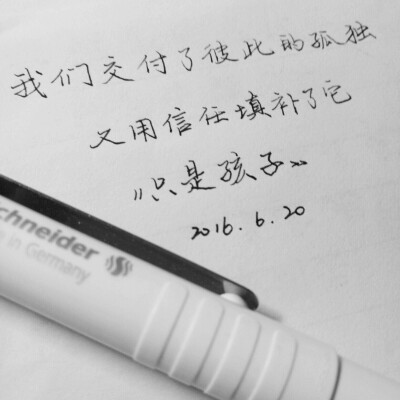 我们交付了彼此的孤独
又用信任填补了它
《只是孩子》
2016.6.20
chneider
in Germany